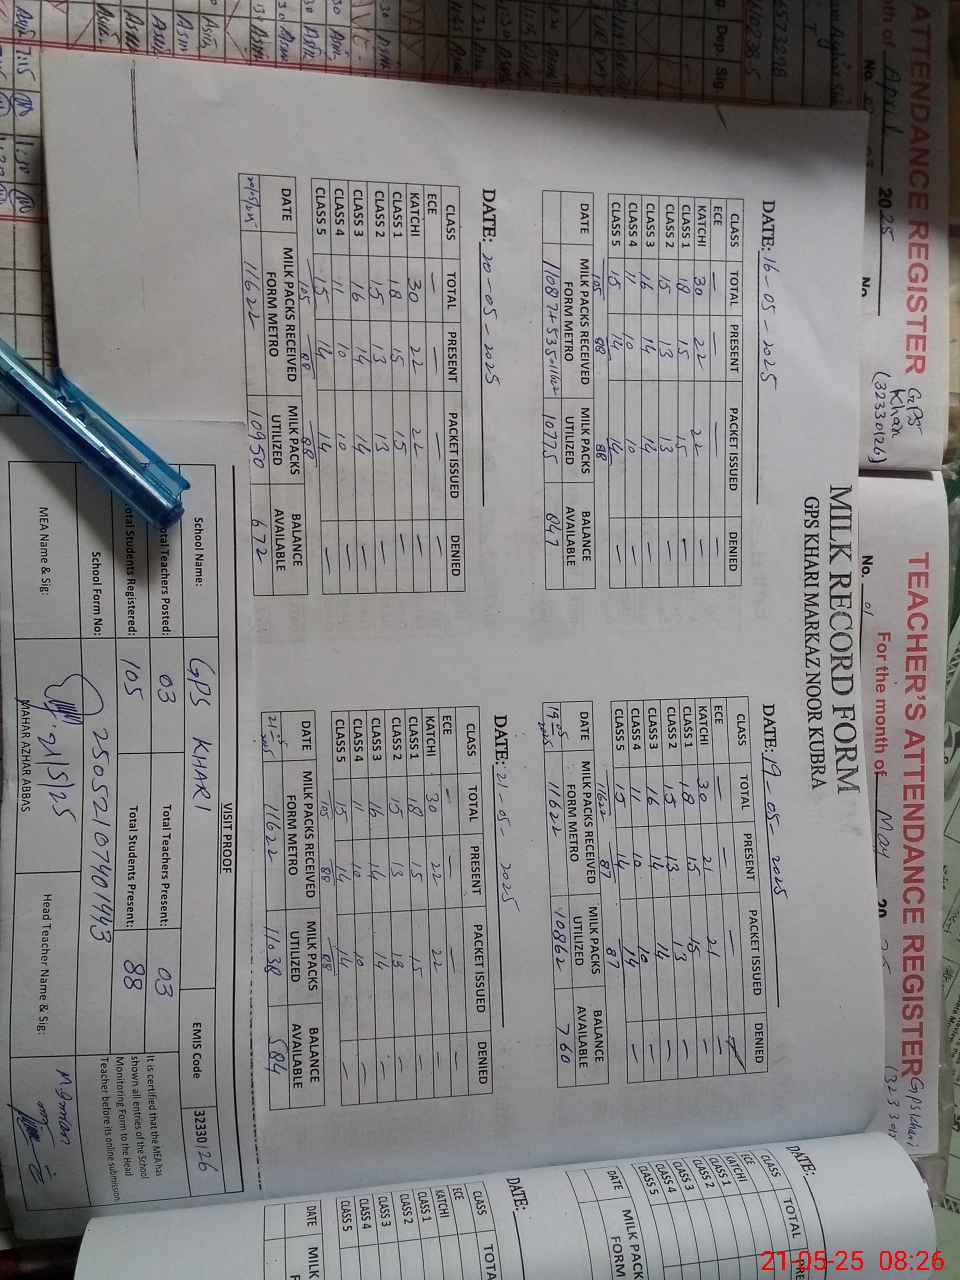 MILK RECORD FORM
GPS KHARI MARKAZ NOOR KUBRA
DATE: 16-05-2025
CLASS TOTAL PRESENT PACKET ISSUED DENIED
ECE — — — —
KATCHI 30 22 22 —
CLASS 1 18 15 15 —
CLASS 2 15 13 13 —
CLASS 3 16 14 14 —
CLASS 4 11 10 10 —
CLASS 5 15 14 14 —
105 88 88
DATE MILK PACKS RECEIVED FORM METRO MILK PACKS UTILIZED BALANCE AVAILABLE
11087+535=11622 10775 847
DATE: 19-05-2025
CLASS TOTAL PRESENT PACKET ISSUED DENIED
ECE — — —
KATCHI 30 21 21 —
CLASS 1 18 15 15 —
CLASS 2 15 13 13 —
CLASS 3 16 14 14 —
CLASS 4 11 10 10 —
CLASS 5 15 14 14 —
11622 87 87
DATE MILK PACKS RECEIVED FORM METRO MILK PACKS UTILIZED BALANCE AVAILABLE
19-05-2025 11622 10862 760
DATE: 20-05-2025
CLASS TOTAL PRESENT PACKET ISSUED DENIED
ECE — — — —
KATCHI 30 22 22 —
CLASS 1 18 15 15 —
CLASS 2 15 13 13 —
CLASS 3 16 14 14 —
CLASS 4 11 10 10 —
CLASS 5 15 14 14 —
105 88 88
DATE MILK PACKS RECEIVED FORM METRO MILK PACKS UTILIZED BALANCE AVAILABLE
11622 10950 672
DATE: 21-05-2025
CLASS TOTAL PRESENT PACKET ISSUED DENIED
ECE — — — —
KATCHI 30 22 22 —
CLASS 1 18 15 15 —
CLASS 2 15 13 13 —
CLASS 3 16 14 14 —
CLASS 4 11 10 10 —
CLASS 5 15 14 14 —
105 88 88
DATE MILK PACKS RECEIVED FORM METRO MILK PACKS UTILIZED BALANCE AVAILABLE
21-05-2025 11622 11038 584
VISIT PROOF
School Name: GPS KHARI EMIS Code 32330126
Total Teachers Posted: 03 Total Teachers Present: 03
Total Students Registered: 105 Total Students Present: 88
School Form No: 25052107401443
It is certified that the MEA has
shown all entries of the School
Monitoring Form to the Head
Teacher before its online submission
MEA Name & Sig: 21/5/25
MAHAR AZHAR ABBAS
Head Teacher Name & Sig:
ATTENDANCE REGISTER
April 2025
GPS
Khari
(32330126)
TEACHER'S ATTENDANCE REGISTER
No. 01
For the month of May 20
DATE:
CLASS TOTAL
ECE
KATCHI
CLASS 1
CLASS 2
CLASS 3
CLASS 4
CLASS 5
DATE MILK PACK
FORM
DATE:
CLASS TOTAL
ECE
KATCHI
CLASS 1
CLASS 2
CLASS 3
CLASS 4
CLASS 5
DATE MILK
21-05-25 08:26